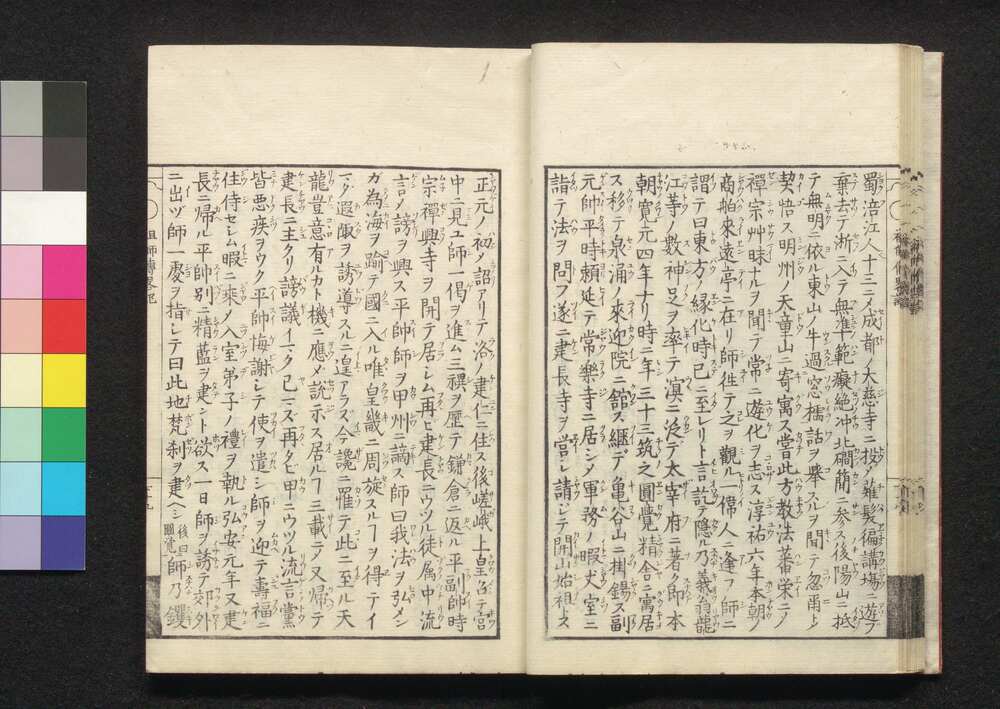 蜀ノ涪江人十三ニメ成都ノ大慈寺ニ投メ薙髪徧講場ニ遊フ
棄去テ浙ニ入テ無準範癡絶冲北磵簡ニ参ス後陽山ニ抵
テ無明ニ依ル東山ノ牛過窓櫺話ヲ擧スルヲ聞テ忽爾ト
契悟ス明州ノ天童山ニ寄寓ス嘗此方教法蕃栄ニノ
禪宗艸昧ナルヲ聞テ常ニ遊化ヲ志ス淳祐六年本朝ノ
商舶來遠亭ニ在リ師徃テ之ヲ觀ル偉人ニ逢フ師ニ
謂テ曰東方ノ縁化時已ニ至レリト言訖テ隠ル乃義翁龍
江等ノ數神足ヲ率テ溟ニ泛テ太宰府ニ著ク即本
朝ノ寛元四年ナリ時ニ年三十三筑之圓覺精舎ニ寓居
ス移テ泉涌ノ來迎院ニ舘ス継テ亀谷山ニ掛錫ス副
元帥平時頼延テ常樂寺ニ居シメ軍務ノ暇丈室ニ
詣テ法ヲ問フ遂ニ建長寺ヲ営シ請シテ開山始祖トス
正元ノ初メ詔アリテ洛ノ建仁ニ住ス後嵯峨上皇召テ宮
中ニ見ユ師一偈ヲ進ム三禩ヲ歴テ鎌倉ニ返ル平副帥時
宗禪興寺ヲ開テ居シム再ヒ建長ニウツル徒属中流
言メ謗ヲ興ス平帥師ヲ甲州ニ謫ス師曰我法ヲ弘メン
カ為海ヲ踰テ國ニ入ル唯皇畿ニ周旋スルヿヲ得テイ
マタ遐陬ヲ誘導スルニ遑アラズ今讒ニ罹テ此ニ至ル天
龍豈意有ルカト機ニ應メ説示ス居ルヿ三載ニメ又帰テ
建長ニ主タリ謗議イマタ已マズ再タビ甲ニウツル流言黨
皆悪疾ヲウク平帥悔謝シテ使ヲ遣シ師ヲ迎テ壽福ニ
住侍セシム暇ニ乘メ入室弟子ノ禮ヲ執ル弘安元年又建
長ニ帰ル平帥別ニ精藍ヲ建ント欲ス一日師ヲ誘テ郊外
ニ出ヅ師一處ヲ指シテ曰此地梵刹ヲ建ヘシ 後曰 圓覺 師乃钁
祖師傳畧記